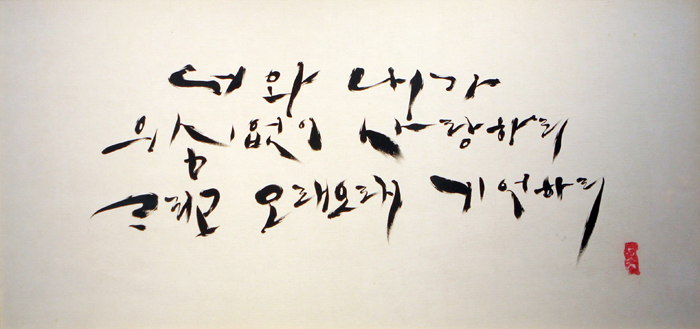 너와 내가
의심없이 사랑하리
그리고 오래오래 기억하리